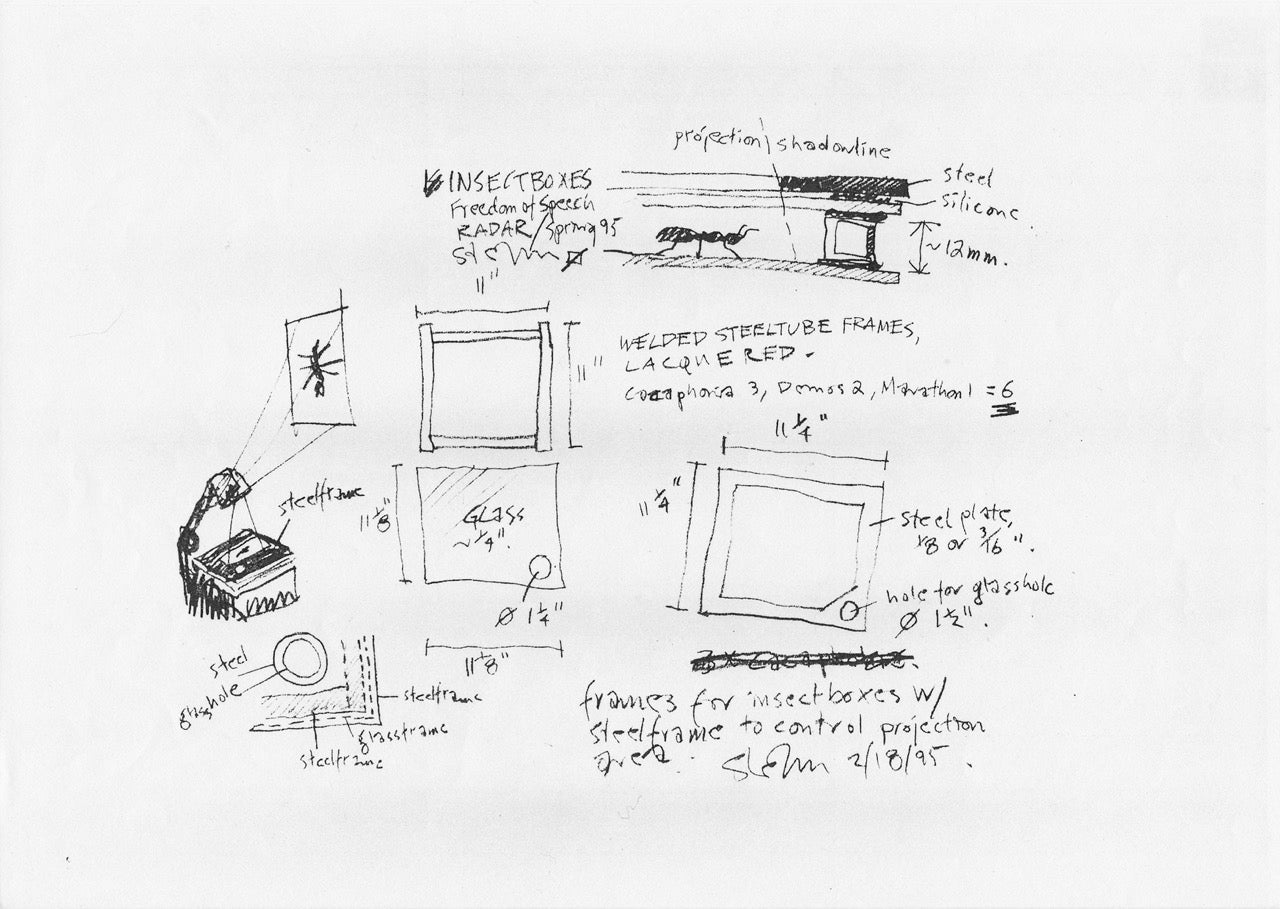 projection | shadowline
steel
silicone
~12mm.
INSECTBOXES
Freedom of Speech
RADAR / Spring 95
11"
11"
WELDED STEELTUBE FRAMES,
LACQUERED.
Cocaphonia 3, Demos 2, Marathon 1 = 6
steelframe
11 1/8"
GLASS
~1/4".
Ø 1 1/4"
11 1/8"
11 1/4"
11 1/4"
steel plate,
1/8 or 3/16".
hole for glasshole
Ø 1 1/2".
steel
glasshole
steelframe
glassframe
steelframe
frames for insectboxes w/
steelframe to control projection
area.
2/18/95.